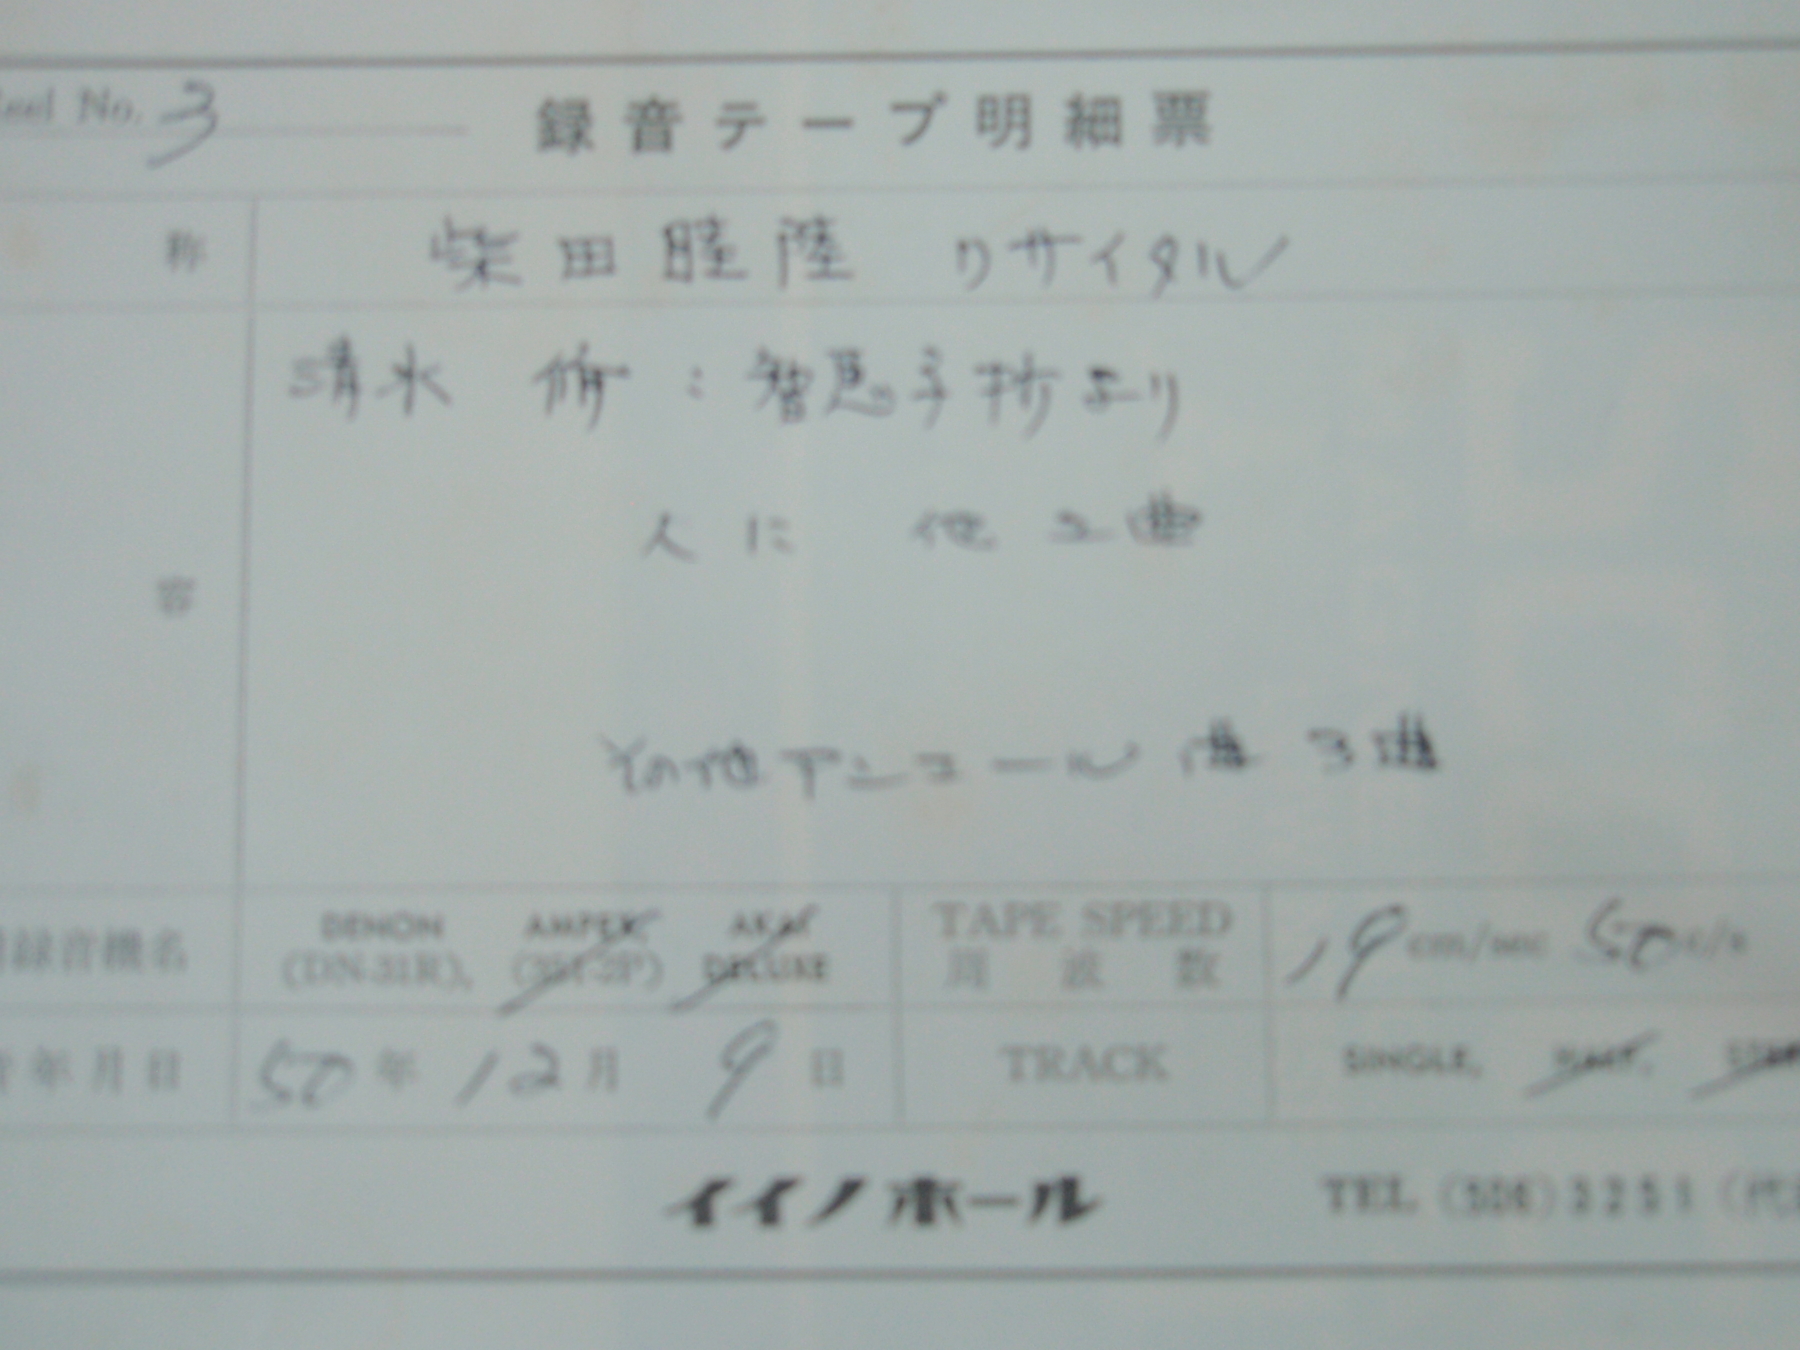 Reel No. 3
録音テープ明細票
称 柴田睦陸 リサイタル
清水 修 : 智恵子抄より
人に 他2曲
容
その他アンコール曲 3曲
録音機名 DENON (DN-31R), AMPEX, AKAI DELUXE
TAPE SPEED 周波数 19 cm/sec 50 c/s
年月日 50年 12月 9日 TRACK SINGLE,
イイノホール TEL